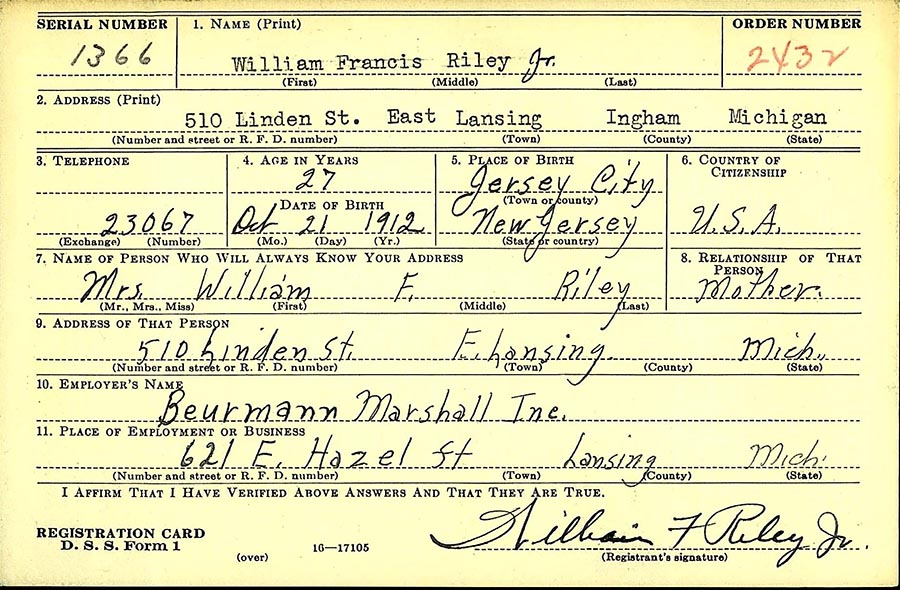 SERIAL NUMBER 1. NAME (Print) ORDER NUMBER
1366 William Francis Riley Jr. 2432
(First) (Middle) (Last)
2. ADDRESS (Print)
510 Linden St. East Lansing Ingham Michigan
(Number and street or R. F. D. number) (Town) (County) (State)
3. TELEPHONE 4. AGE IN YEARS 5. PLACE OF BIRTH 6. COUNTRY OF CITIZENSHIP
27 Jersey City
DATE OF BIRTH (Town or county)
23067 Oct 21 1912 New Jersey U.S.A.
(Exchange) (Number) (Mo.) (Day) (Yr.) (State or country)
7. NAME OF PERSON WHO WILL ALWAYS KNOW YOUR ADDRESS 8. RELATIONSHIP OF THAT PERSON
Mrs. William F. Riley Mother.
(Mr., Mrs., Miss) (First) (Middle) (Last)
9. ADDRESS OF THAT PERSON
510 Linden St. E. Lansing. Mich.
(Number and street or R. F. D. number) (Town) (County) (State)
10. EMPLOYER'S NAME
Beurmann Marshall Inc.
11. PLACE OF EMPLOYMENT OR BUSINESS
621 E. Hazel St Lansing Mich.
(Number and street or R. F. D. number) (Town) (County) (State)
I AFFIRM THAT I HAVE VERIFIED ABOVE ANSWERS AND THAT THEY ARE TRUE.
REGISTRATION CARD
D. S. S. Form 1 William F Riley Jr.
(over) 16—17105 (Registrant's signature)